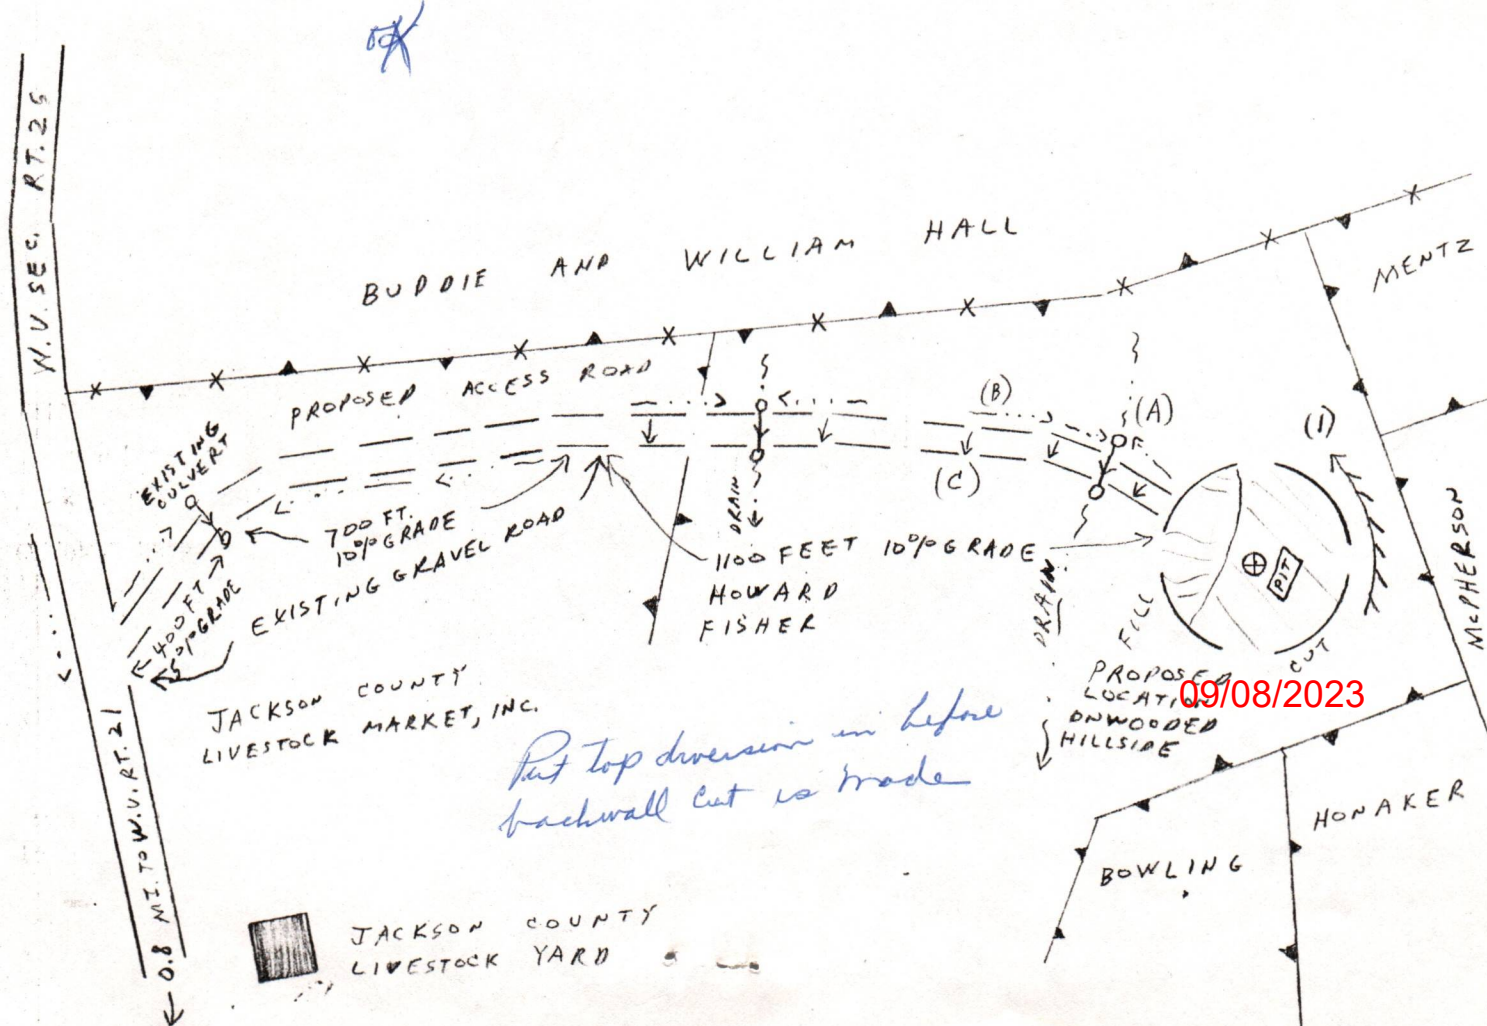 OK
W.V. SEC. RT. 25
BUDDIE AND WILLIAM HALL
MENTZ
PROPOSED ACCESS ROAD
(B)
(A)
(1)
EXISTING
CULVERT
(C)
700 FT.
10% GRADE
EXISTING GRAVEL ROAD
DRAIN
1100 FEET 10% GRADE
HOWARD
FISHER
DRAIN
FILL
PIT
CUT
McPHERSON
400 FT
5% GRADE
PROPOSED
LOCATION
ON WOODED
HILLSIDE
09/08/2023
JACKSON COUNTY
LIVESTOCK MARKET, INC.
Put top diversion in before
backwall cut is made
0.8 MI. TO W.V. RT. 21
HONAKER
BOWLING
JACKSON COUNTY
LIVESTOCK YARD